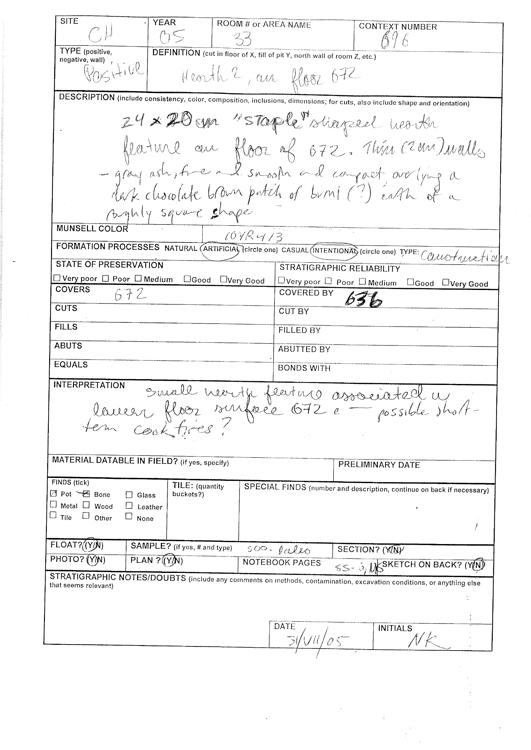 SITE CH YEAR 05 ROOM # or AREA NAME 33 CONTEXT NUMBER 696
TYPE (positive, negative, wall) Positive DEFINITION (cut in floor X, fill of pit Y, north wall of room Z, etc.)
Hearth?, on floor 672
DESCRIPTION (include consistency, color, composition, inclusions, dimensions; for cuts, also include shape and orientation)
24 x 20 cm "staple" shaped hearth
feature on floor of 672. Thin (2cm) walls
- gray ash, fine and smooth and compact overlying a
dark chocolate brown patch of burnt (?) earth of a
roughly square shape
MUNSELL COLOR 10YR4/3
FORMATION PROCESSES NATURAL ARTIFICIAL (circle one) CASUAL INTENTIONAL (circle one) TYPE: Construction
STATE OF PRESERVATION STRATIGRAPHIC RELIABILITY
Very poor Poor Medium Good Very Good Very poor Poor Medium Good Very Good
COVERS 672 COVERED BY 636
CUTS CUT BY
FILLS FILLED BY
ABUTS ABUTTED BY
EQUALS BONDS WITH
INTERPRETATION small hearth feature associated w
lower floor surface 672 — possible short-
term cook fires?
MATERIAL DATABLE IN FIELD? (if yes, specify) PRELIMINARY DATE
FINDS (tick) TILE: (quantity buckets?) SPECIAL FINDS (number and description, continue on back if necessary)
Pot Bone Glass
Metal Wood Leather
Tile Other None
FLOAT? (Y/N) SAMPLE? (if yes, # and type) 500. Paleo SECTION? (Y/N)
PHOTO? (Y/N) PLAN? (Y/N) NOTEBOOK PAGES SKETCH ON BACK? (Y/N)
STRATIGRAPHIC NOTES/DOUBTS (include any comments on methods, contamination, excavation conditions, or anything else
that seems relevant)
DATE 31/VII/05 INITIALS NK